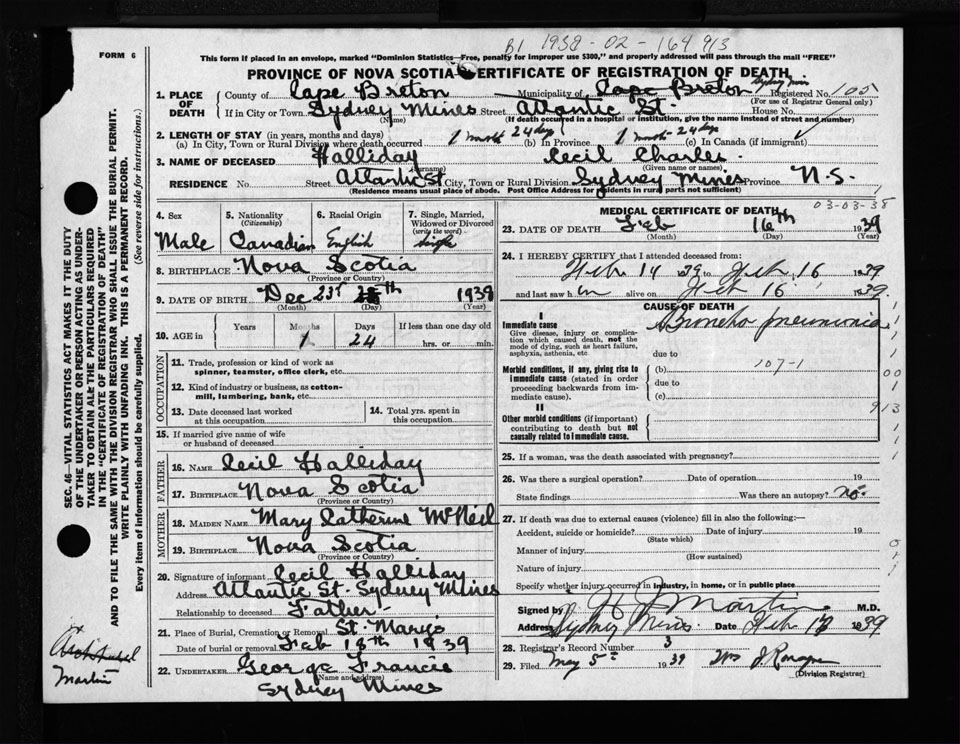 FORM 6
B1 1938 - 02 - 164 913
This form if placed in an envelope, marked "Dominion Statistics—Free, penalty for improper use $300," and properly addressed will pass through the mail "FREE"
PROVINCE OF NOVA SCOTIA CERTIFICATE OF REGISTRATION OF DEATH
1. PLACE OF DEATH County of Cape Breton Municipality of Cape Breton Sydney Mines Registered No. 105
(For use of Registrar General only)
If in City or Town Sydney Mines Street Atlantic St. House No.
(Name) (If death occurred in a hospital or institution, give the name instead of street and number)
2. LENGTH OF STAY (in years, months and days)
(a) In City, Town or Rural Division where death occurred 1 month 24 days (b) In Province 1 month - 24 days (c) In Canada (if immigrant)
3. NAME OF DECEASED Halliday Cecil Charles.
(Surname) (Given name or names)
RESIDENCE No. Street Atlantic St City, Town or Rural Division Sydney Mines Province N.S.
(Residence means usual place of abode. Post Office Address for residents in rural parts not sufficient)
4. Sex Male
5. Nationality (Citizenship) Canadian
6. Racial Origin English
7. Single, Married, Widowed or Divorced (write the word) Single
8. BIRTHPLACE Nova Scotia
(Province or Country)
9. DATE OF BIRTH Dec 23rd th 1938
(Month) (Day) (Year)
10. AGE in Years Months Days If less than one day old
1 24 hrs. or min.
OCCUPATION
11. Trade, profession or kind of work as spinner, teamster, office clerk, etc.
12. Kind of industry or business, as cotton-mill, lumbering, bank, etc.
13. Date deceased last worked at this occupation
14. Total yrs. spent in this occupation.
15. If married give name of wife or husband of deceased
FATHER
16. NAME Cecil Halliday
17. BIRTHPLACE Nova Scotia
(Province or Country)
MOTHER
18. MAIDEN NAME Mary Catherine McNeil
19. BIRTHPLACE Nova Scotia
(Province or Country)
20. Signature of informant Cecil Halliday
Address Atlantic St. Sydney Mines
Relationship to deceased Father
21. Place of Burial, Cremation or Removal St. Marys
Date of burial or removal Feb 18th 1939
22. UNDERTAKER George Francis
(Name and address)
Sydney Mines
MEDICAL CERTIFICATE OF DEATH 03-03-38
23. DATE OF DEATH Feb 16th 1939
(Month) (Day) (Year)
24. I HEREBY CERTIFY that I attended deceased from:
Feb 14 1939 to Feb 16 1939
and last saw him alive on Feb 16 1939.
CAUSE OF DEATH
I
Immediate cause Broncho pneumonia
Give disease, injury or complication which caused death, not the mode of dying, such as heart failure, asphyxia, asthenia, etc
due to
Morbid conditions, if any, giving rise to immediate cause (stated in order proceeding backwards from immediate cause).
(b) 107-1
due to
(c)
II
Other morbid conditions (if important) contributing to death but not causally related to immediate cause.
913
25. If a woman, was the death associated with pregnancy?
26. Was there a surgical operation? Date of operation 19
State findings Was there an autopsy? no.
27. If death was due to external causes (violence) fill in also the following:—
Accident, suicide or homicide? Date of injury 19
(State which)
Manner of injury
(How sustained)
Nature of injury
Specify whether injury occurred in industry, in home, or in public place
Signed by H J Martin M.D.
Address Sydney Mines Date Feb 18 1939
28. Registrar's Record Number 3
29. Filed May 5th 1939
(Division Registrar)
SEC. 46—VITAL STATISTICS ACT MAKES IT THE DUTY OF THE UNDERTAKER OR PERSON ACTING AS UNDERTAKER TO OBTAIN ALL THE PARTICULARS REQUIRED IN THE "CERTIFICATE OF REGISTRATION OF DEATH" AND TO FILE THE SAME WITH THE DIVISION REGISTRAR WHO SHALL ISSUE THE BURIAL PERMIT.
WRITE PLAINLY WITH UNFADING INK. THIS IS A PERMANENT RECORD.
Every item of information should be carefully supplied. (See reverse side for instructions.)
Martin